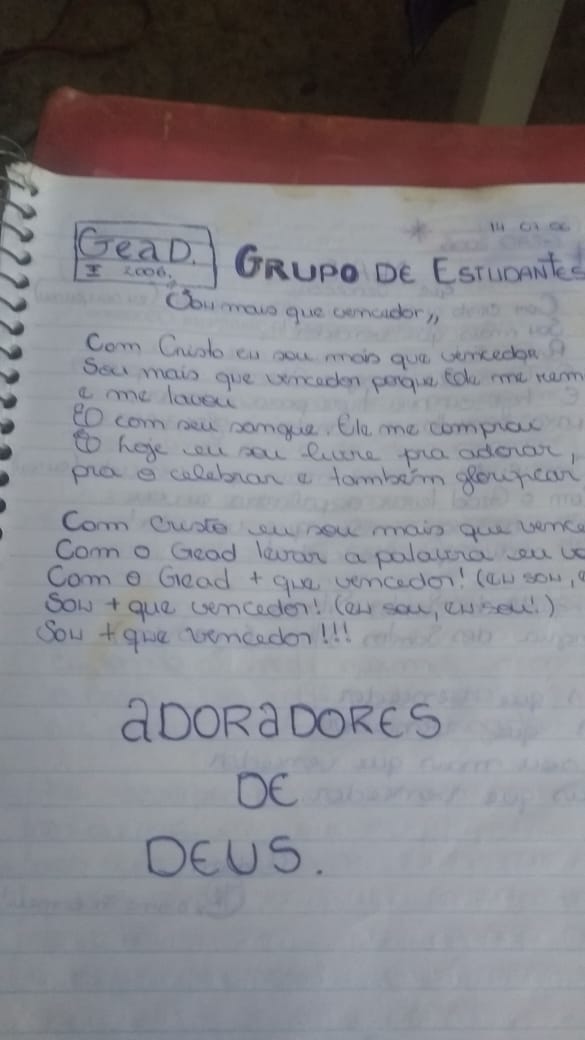 * 14 07 06
GeaD.
I 2006.
GRUPO DE ESTUDANTES
"Sou mais que vencedor"
Com Cristo eu sou mais que vencedor
Sou mais que vencedor porque Ele me
e me lavou
E com seu sangue. Ele me comprou
E hoje eu sou livre pra adorar,
pra o celebrar e também
Com Cristo eu sou mais que vence
Com o Gead levar a palavra eu
Com o Gead + que vencedor! (eu sou,
Sou + que vencedor! (eu sou, eu sou!)
Sou + que vencedor!!!
aDORaDORES
DE
DEUS.